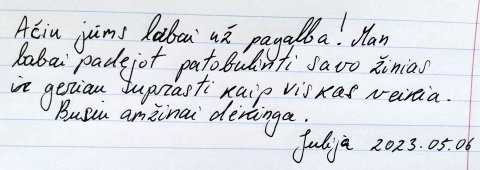 Ačiu jūms labai už pagalba! Man
labai padėjot patobulinti savo žinias
ir geriau suprasti kaip viskas veikia.
Busiu amžinai dėkinga.
Julija 2023.05.06